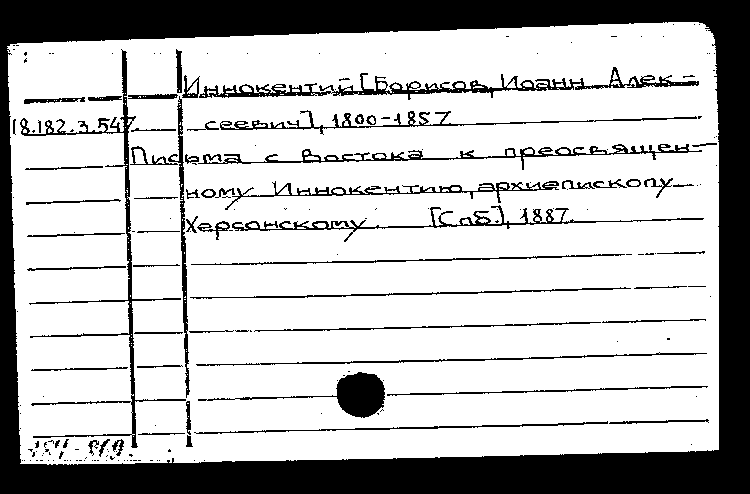 Иннокентий [Борисов, Иоанн Алек-
18.182.3.547. сеевич], 1800-1857.
Письма с Востока к преосвящен-
ному Иннокентию, архиепископу
Херсонскому. [Спб], 1887.